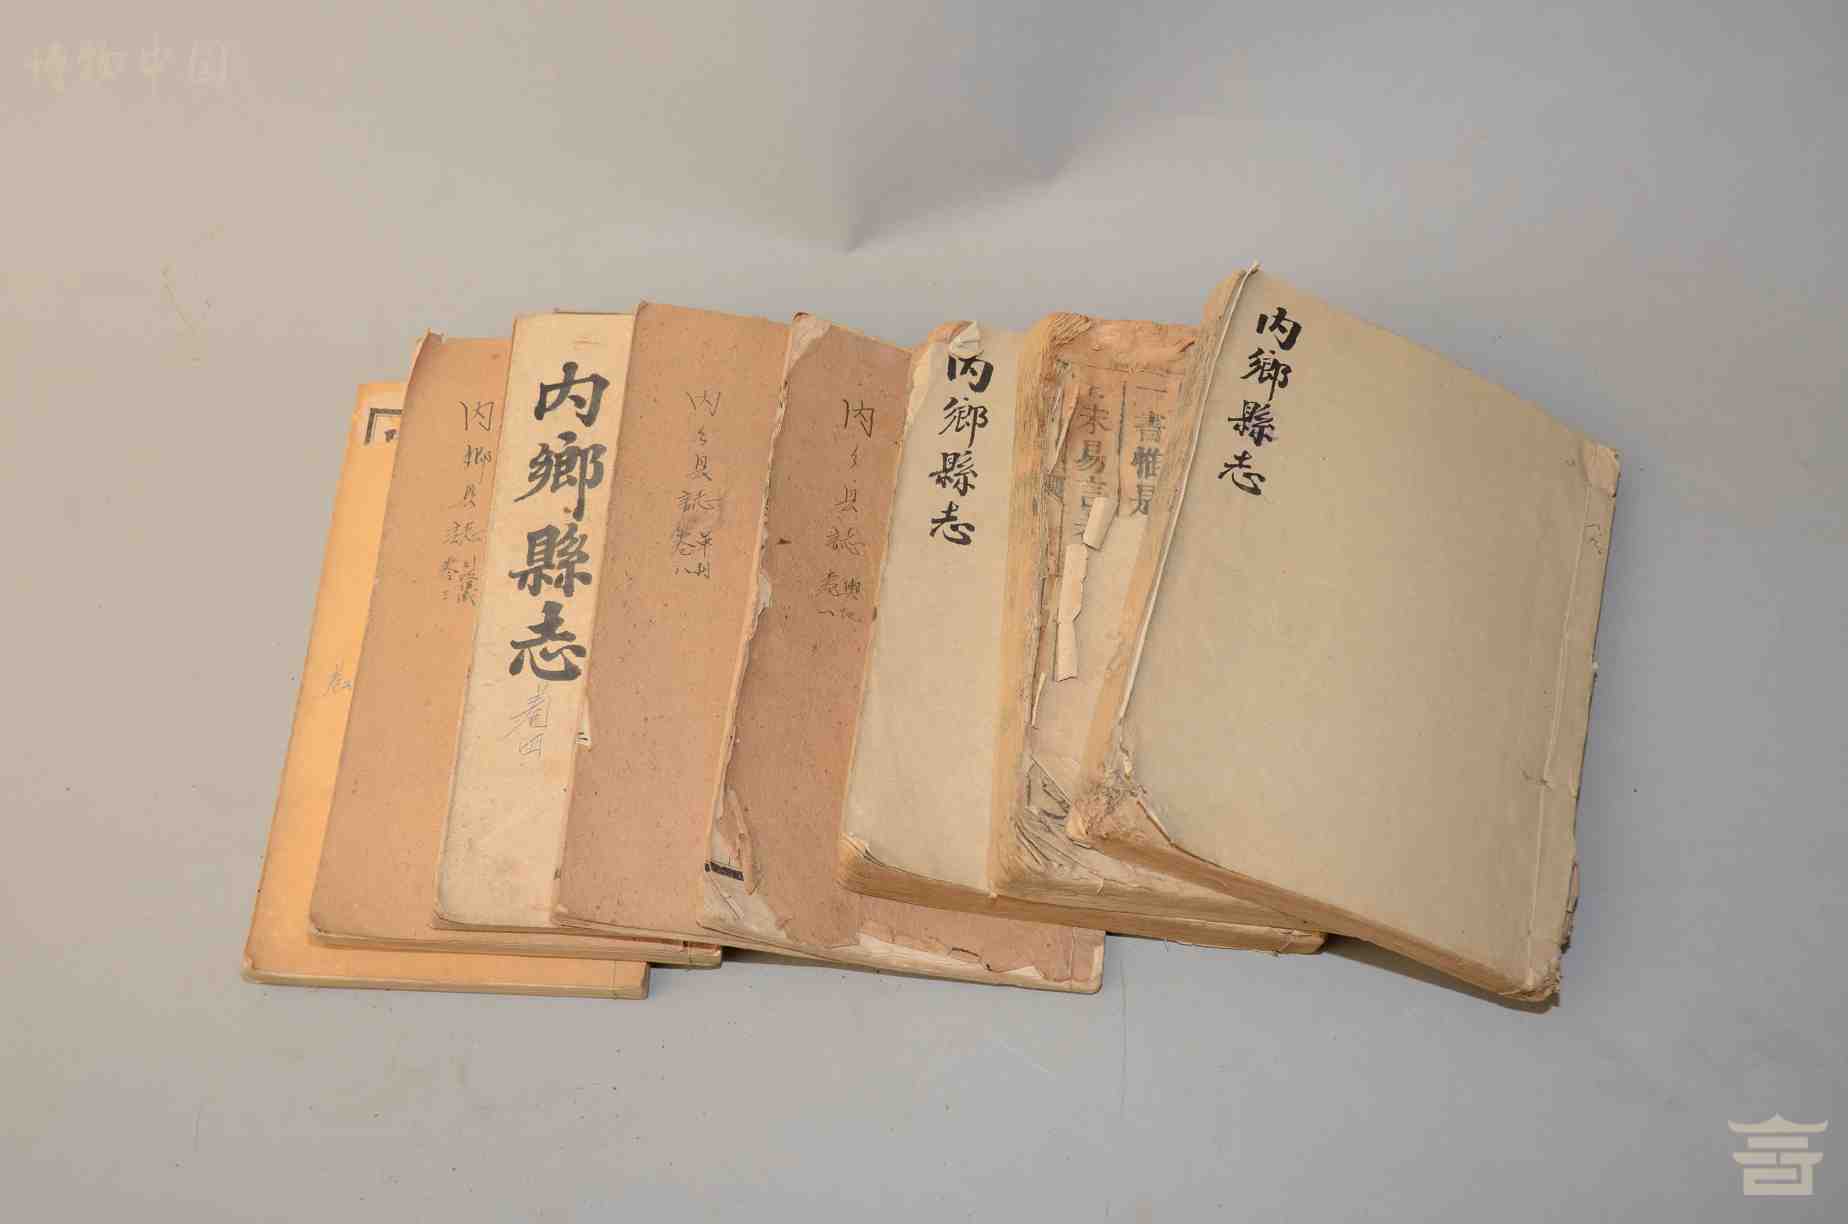 博物中国
内鄉縣志
一書惟是
未易言
内鄉縣志
内乡县誌
輿地
卷一
内乡县誌
卷八
内鄉縣志
卷四
内鄉县誌
卷三